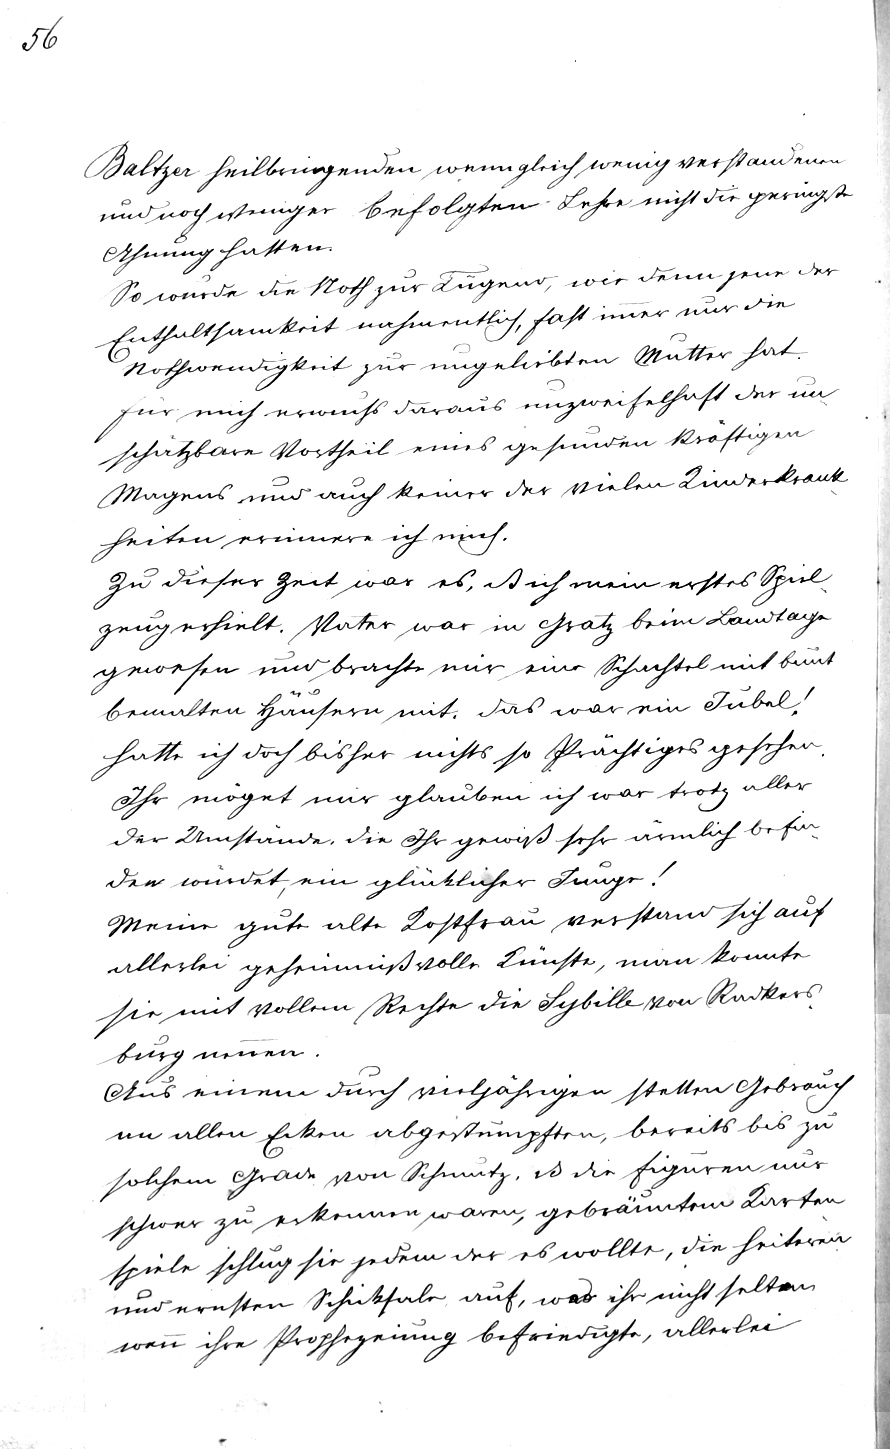 56
Baltzer heilbringenden wenngleich wenig verstandenen
und noch weniger befolgten Lehre nicht die geringste
Ahnung hatten.
So wurde die Noth zur Tugend, wie denn jene der
Enthaltsamkeit nahmentlich, fast im̅er nur die
Nothwendigkeit zur ungeliebten Mutter hat.
für mich erwuchs daraus unzweifelhaft der un-
schätzbare Vortheil eines gesunden kräftigen
Magens und auch keiner der vielen Kinderkrank-
heiten erinnere ich mich.
Zu dieser Zeit war es, ß ich mein erstes Spiel-
zeug erhielt. Vater war in Gratz beim Landtage
gewesen und brachte mir eine Schachtel mit bunt
bemalten Häusern mit. das war ein Jubel!
hatte ich doch bisher nichts so Prächtiges gesehen.
Ihr möget mir glauben ich war trotz aller
der Umstände. die Ihr gewiß sehr ärmlich befin-
den würdet, ein glücklicher Junge!
Meine gute alte Kostfrau verstand sich auf
allerlei geheimnißvolle Künste, man konnte
sie mit vollem Rechte die Sybille von Radkers-
burg nen̅en.
Aus einem durch vieljährigen stetten Gebrauch
an allen Ecken abgestumpften, bereits bis zu
solchem Grade von Schmutz, ß die Figuren nur
schwer zu erkennen waren, gebräunten Karten
spiele schlug sie jedem der es wollte, die heiteren
und ernsten Schicksale auf, was ihr nicht selten
wen̅ ihre Prophezeiung befriedigte, allerlei